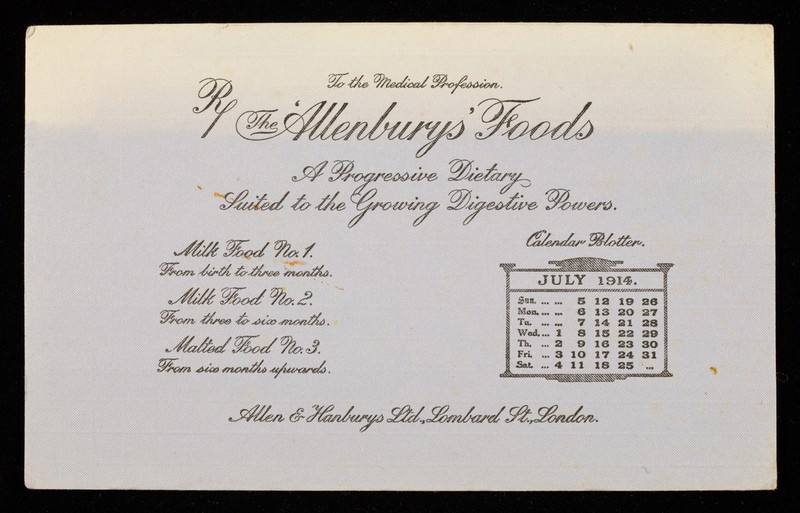 To the Medical Profession.
Rx The 'Allenburys' Foods
A Progressive Dietary
Suited to the Growing Digestive Powers.
Milk Food No. 1.
From birth to three months.
Milk Food No. 2.
From three to six months.
Malted Food No. 3.
From six months upwards.
Calendar Blotter.
JULY 1914.
Sun. ... ... 5 12 19 26
Mon. ... ... 6 13 20 27
Tu. ... ... 7 14 21 28
Wed. ... 1 8 15 22 29
Th. ... 2 9 16 23 30
Fri. ... 3 10 17 24 31
Sat. ... 4 11 18 25 ...
Allen & Hanburys Ltd., Lombard St., London.